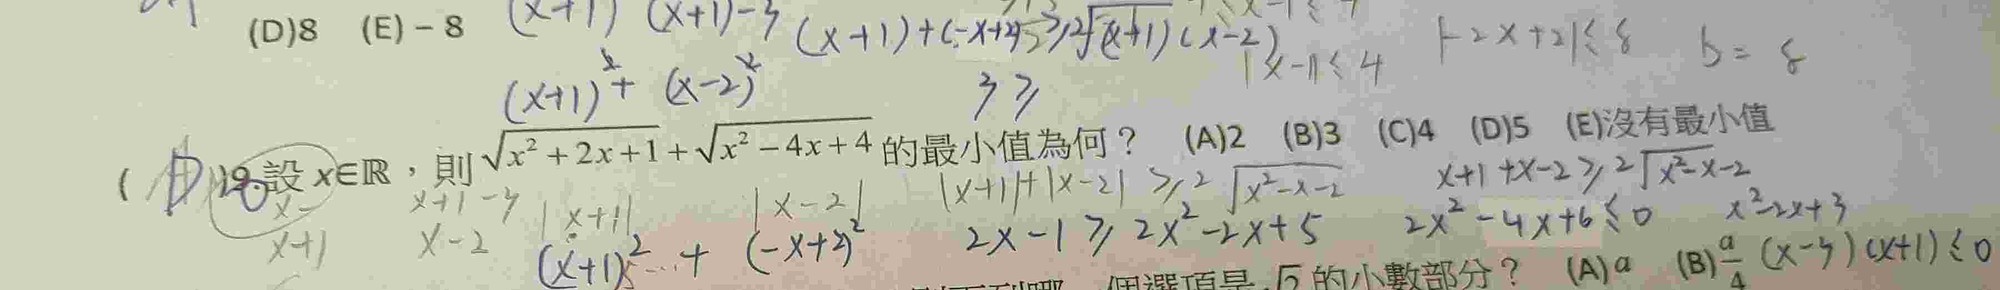 (D)8 (E)－8 (x+1) (x+1)-3 (x+1)+(-x+2)≥2√(x+1)(x-2) |-2x+2|≤8 b=8
(x+1)²+(x-2)² 3≥ |x-1|≤4
( D )19.設 x∈ℝ，則√x²+2x+1+√x²-4x+4的最小值為何？ (A)2 (B)3 (C)4 (D)5 (E)沒有最小值
x+1-3 |x+1| |x-2| |x+1|+|x-2|≥2√x²-x-2 x+1+x-2≥2√x²-x-2
x+1 x-2 (x+1)²...+(-x+2)² 2x-1≥2x²-2x+5 2x²-4x+6≤0 x²-2x+3
個選項是√2的小數部分？ (A)a (B)a/4 (x-3)(x+1)≤0